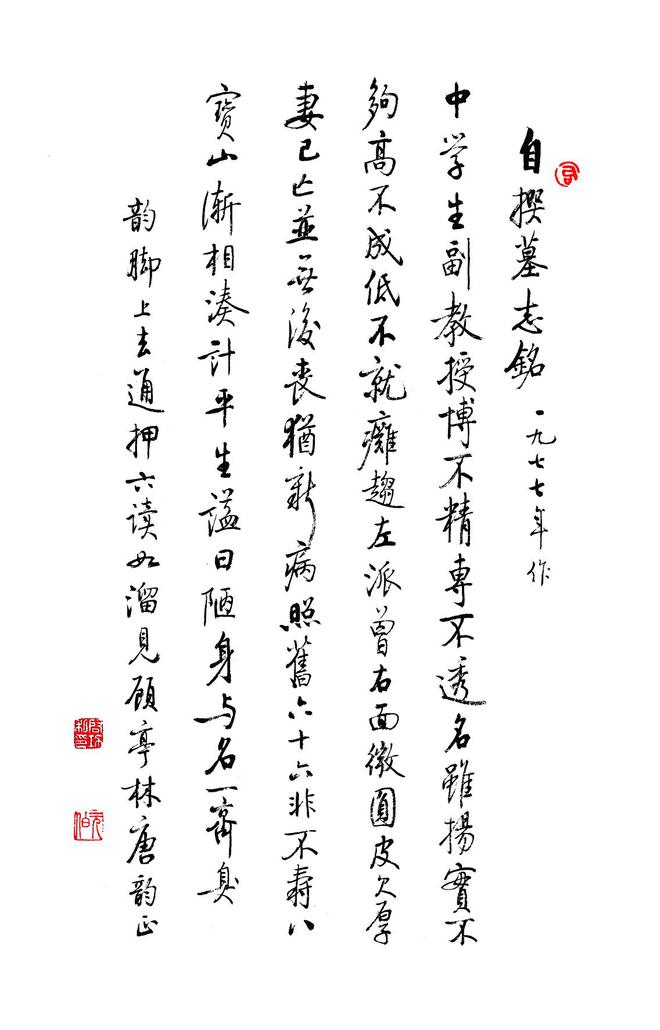 自撰墓志銘 一九七七年作
中学生副教授博不精專不透名雖揚實不
夠高不成低不就癱趨左派曾右面微圓皮欠厚
妻已亡並無後喪猶新病照舊六十六非不壽八
寶山漸相湊計平生謚曰陋身与名一齊臭
韵脚上去通押六读如溜見顾亭林唐韵正
啓功